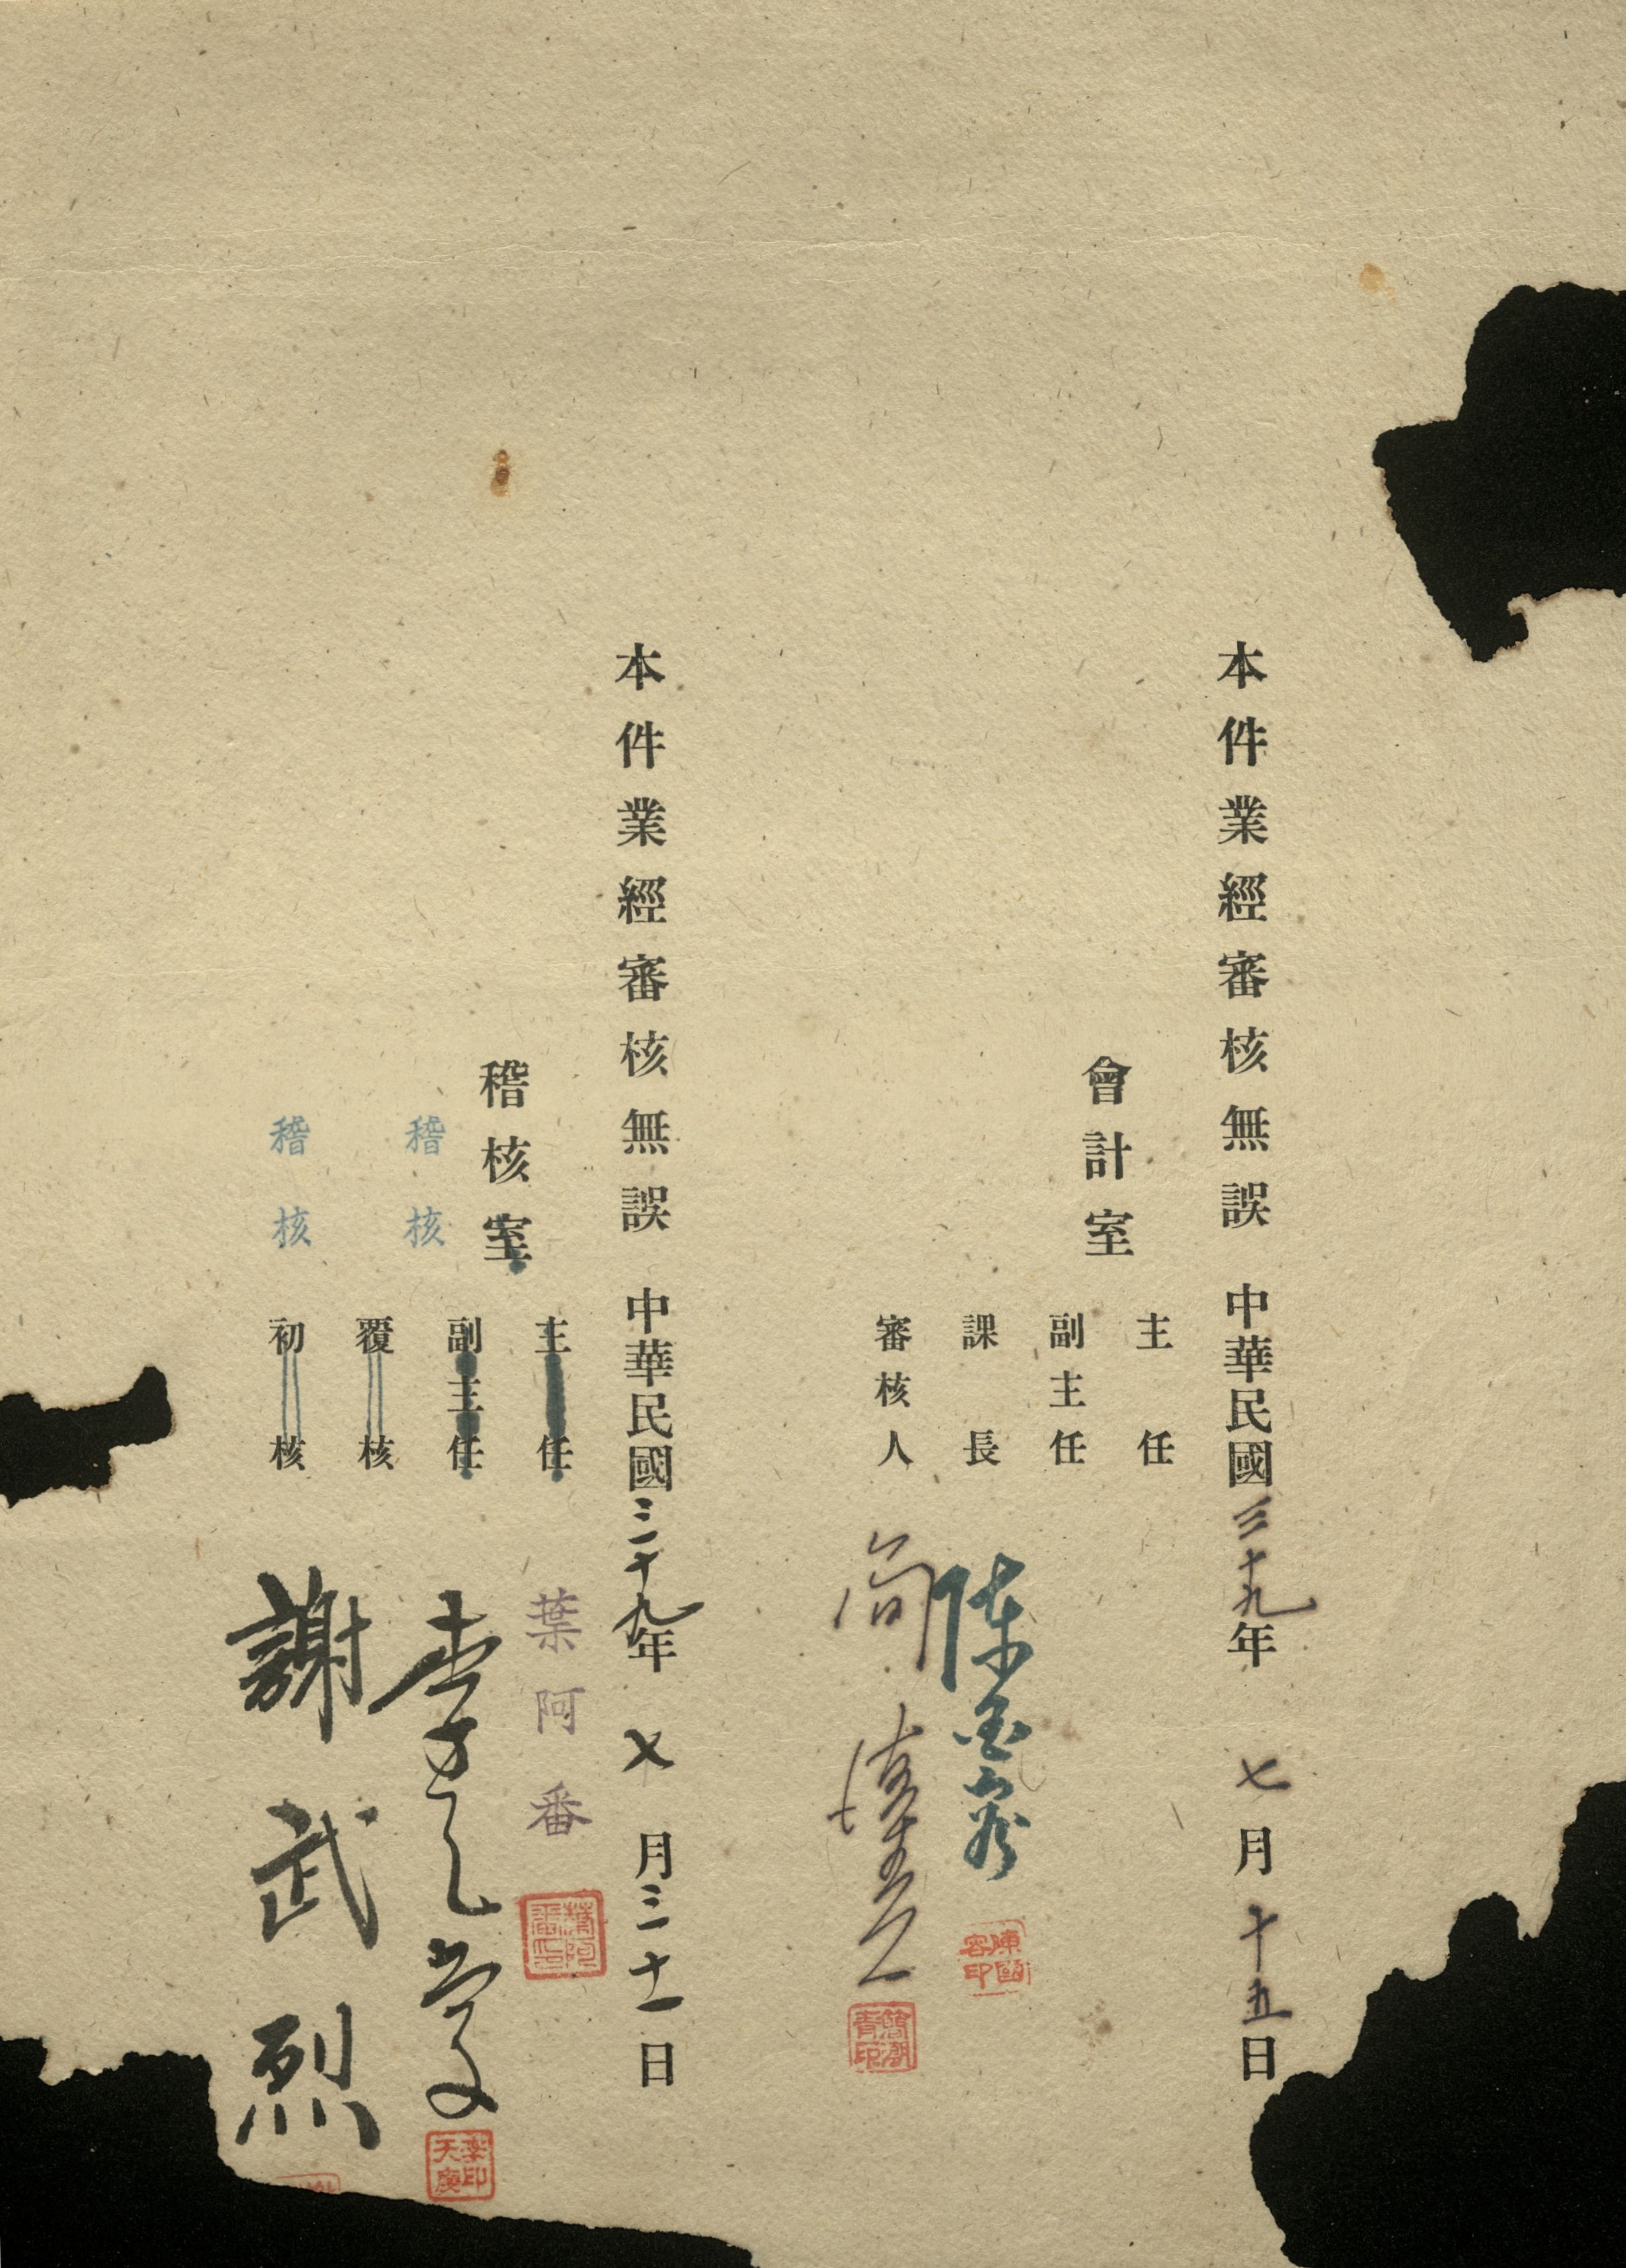 本件業經審核無誤 中華民國三十九年 七月十五日
會計室
主任
副主任
課長 陳國容
審核人 簡
本件業經審核無誤 中華民國三十九年 七月三十一日
稽核室
主任 葉阿番
副主任
稽核 李天慶
覆核
稽核 謝武烈
初核